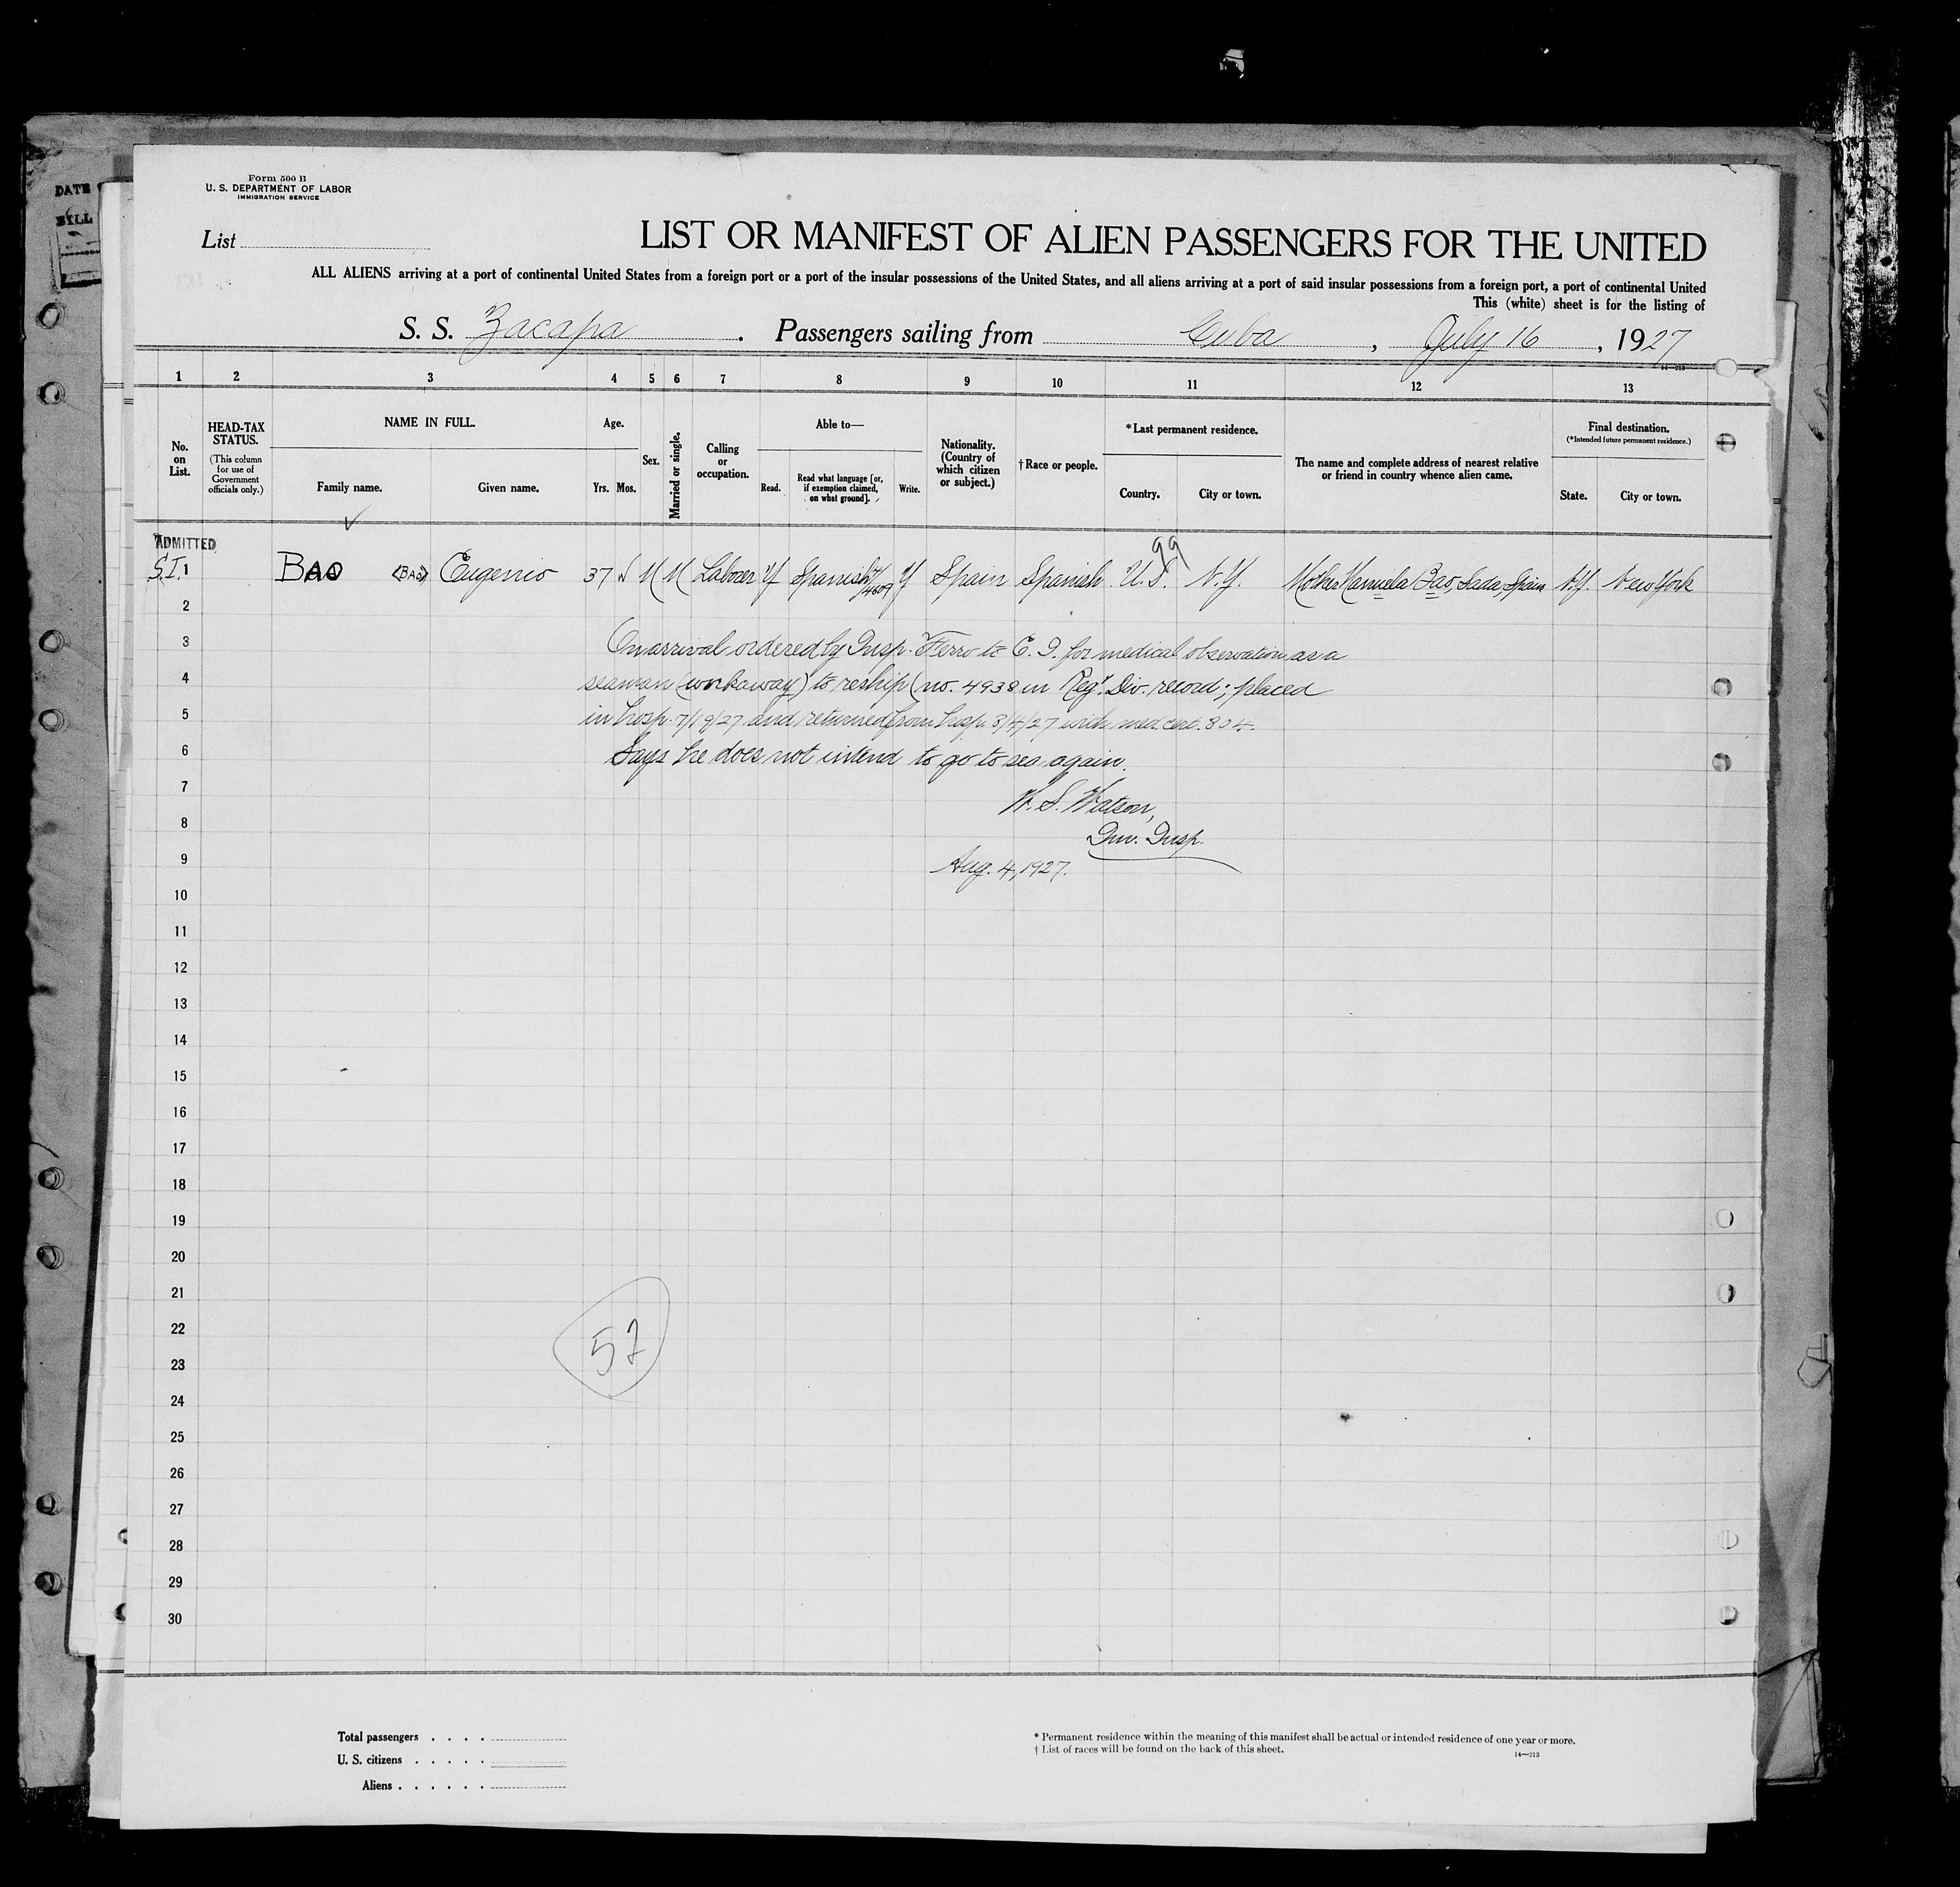 DATE
BILL
Form 500 B
U. S. DEPARTMENT OF LABOR
IMMIGRATION SERVICE
List
LIST OR MANIFEST OF ALIEN PASSENGERS FOR THE UNITED
ALL ALIENS arriving at a port of continental United States from a foreign port or a port of the insular possessions of the United States, and all aliens arriving at a port of said insular possessions from a foreign port, a port of continental United
This (white) sheet is for the listing of
S. S. Zacapa. Passengers sailing from Cuba, July 16, 1927
14—213
1 2 3 4 5 6 7 8 9 10 11 12 13
No. on List.
HEAD-TAX STATUS.
(This column for use of Government officials only.)
NAME IN FULL.
Family name. Given name.
Age.
Yrs. Mos.
Sex.
Married or single.
Calling or occupation.
Able to—
Read. Read what language [or, if exemption claimed, on what ground]. Write.
Nationality. (Country of which citizen or subject.)
†Race or people.
*Last permanent residence.
Country. City or town.
The name and complete address of nearest relative or friend in country whence alien came.
Final destination.
(*Intended future permanent residence.)
State. City or town.
ADMITTED
99
S.I. 1 BAO (BAO) Eugenio 37 M M Laborer Y Spanish Y Spain Spanish U.S. N.Y. Mother Manuela Bao, Sada, Spain N.Y. New York
2
3 On arrival ordered by Insp. Ferro to E. I. for medical observation as a
4 seaman (workaway) to reship (no. 4938 in Reg. Div. record; placed
5 in hosp. 7/19/27 and returned from hosp. 8/4/27 with med. cert. 804.
6 Says he does not intend to go to sea again.
7 W. S. Watson,
8 Imm. Insp.
9 Aug. 4, 1927.
10
11
12
13
14
15
16
17
18
19
20
21
22 57
23
24
25
26
27
28
29
30
Total passengers . . . .
U. S. citizens . . . . .
Aliens . . . . . .
* Permanent residence within the meaning of this manifest shall be actual or intended residence of one year or more.
† List of races will be found on the back of this sheet.
14—213